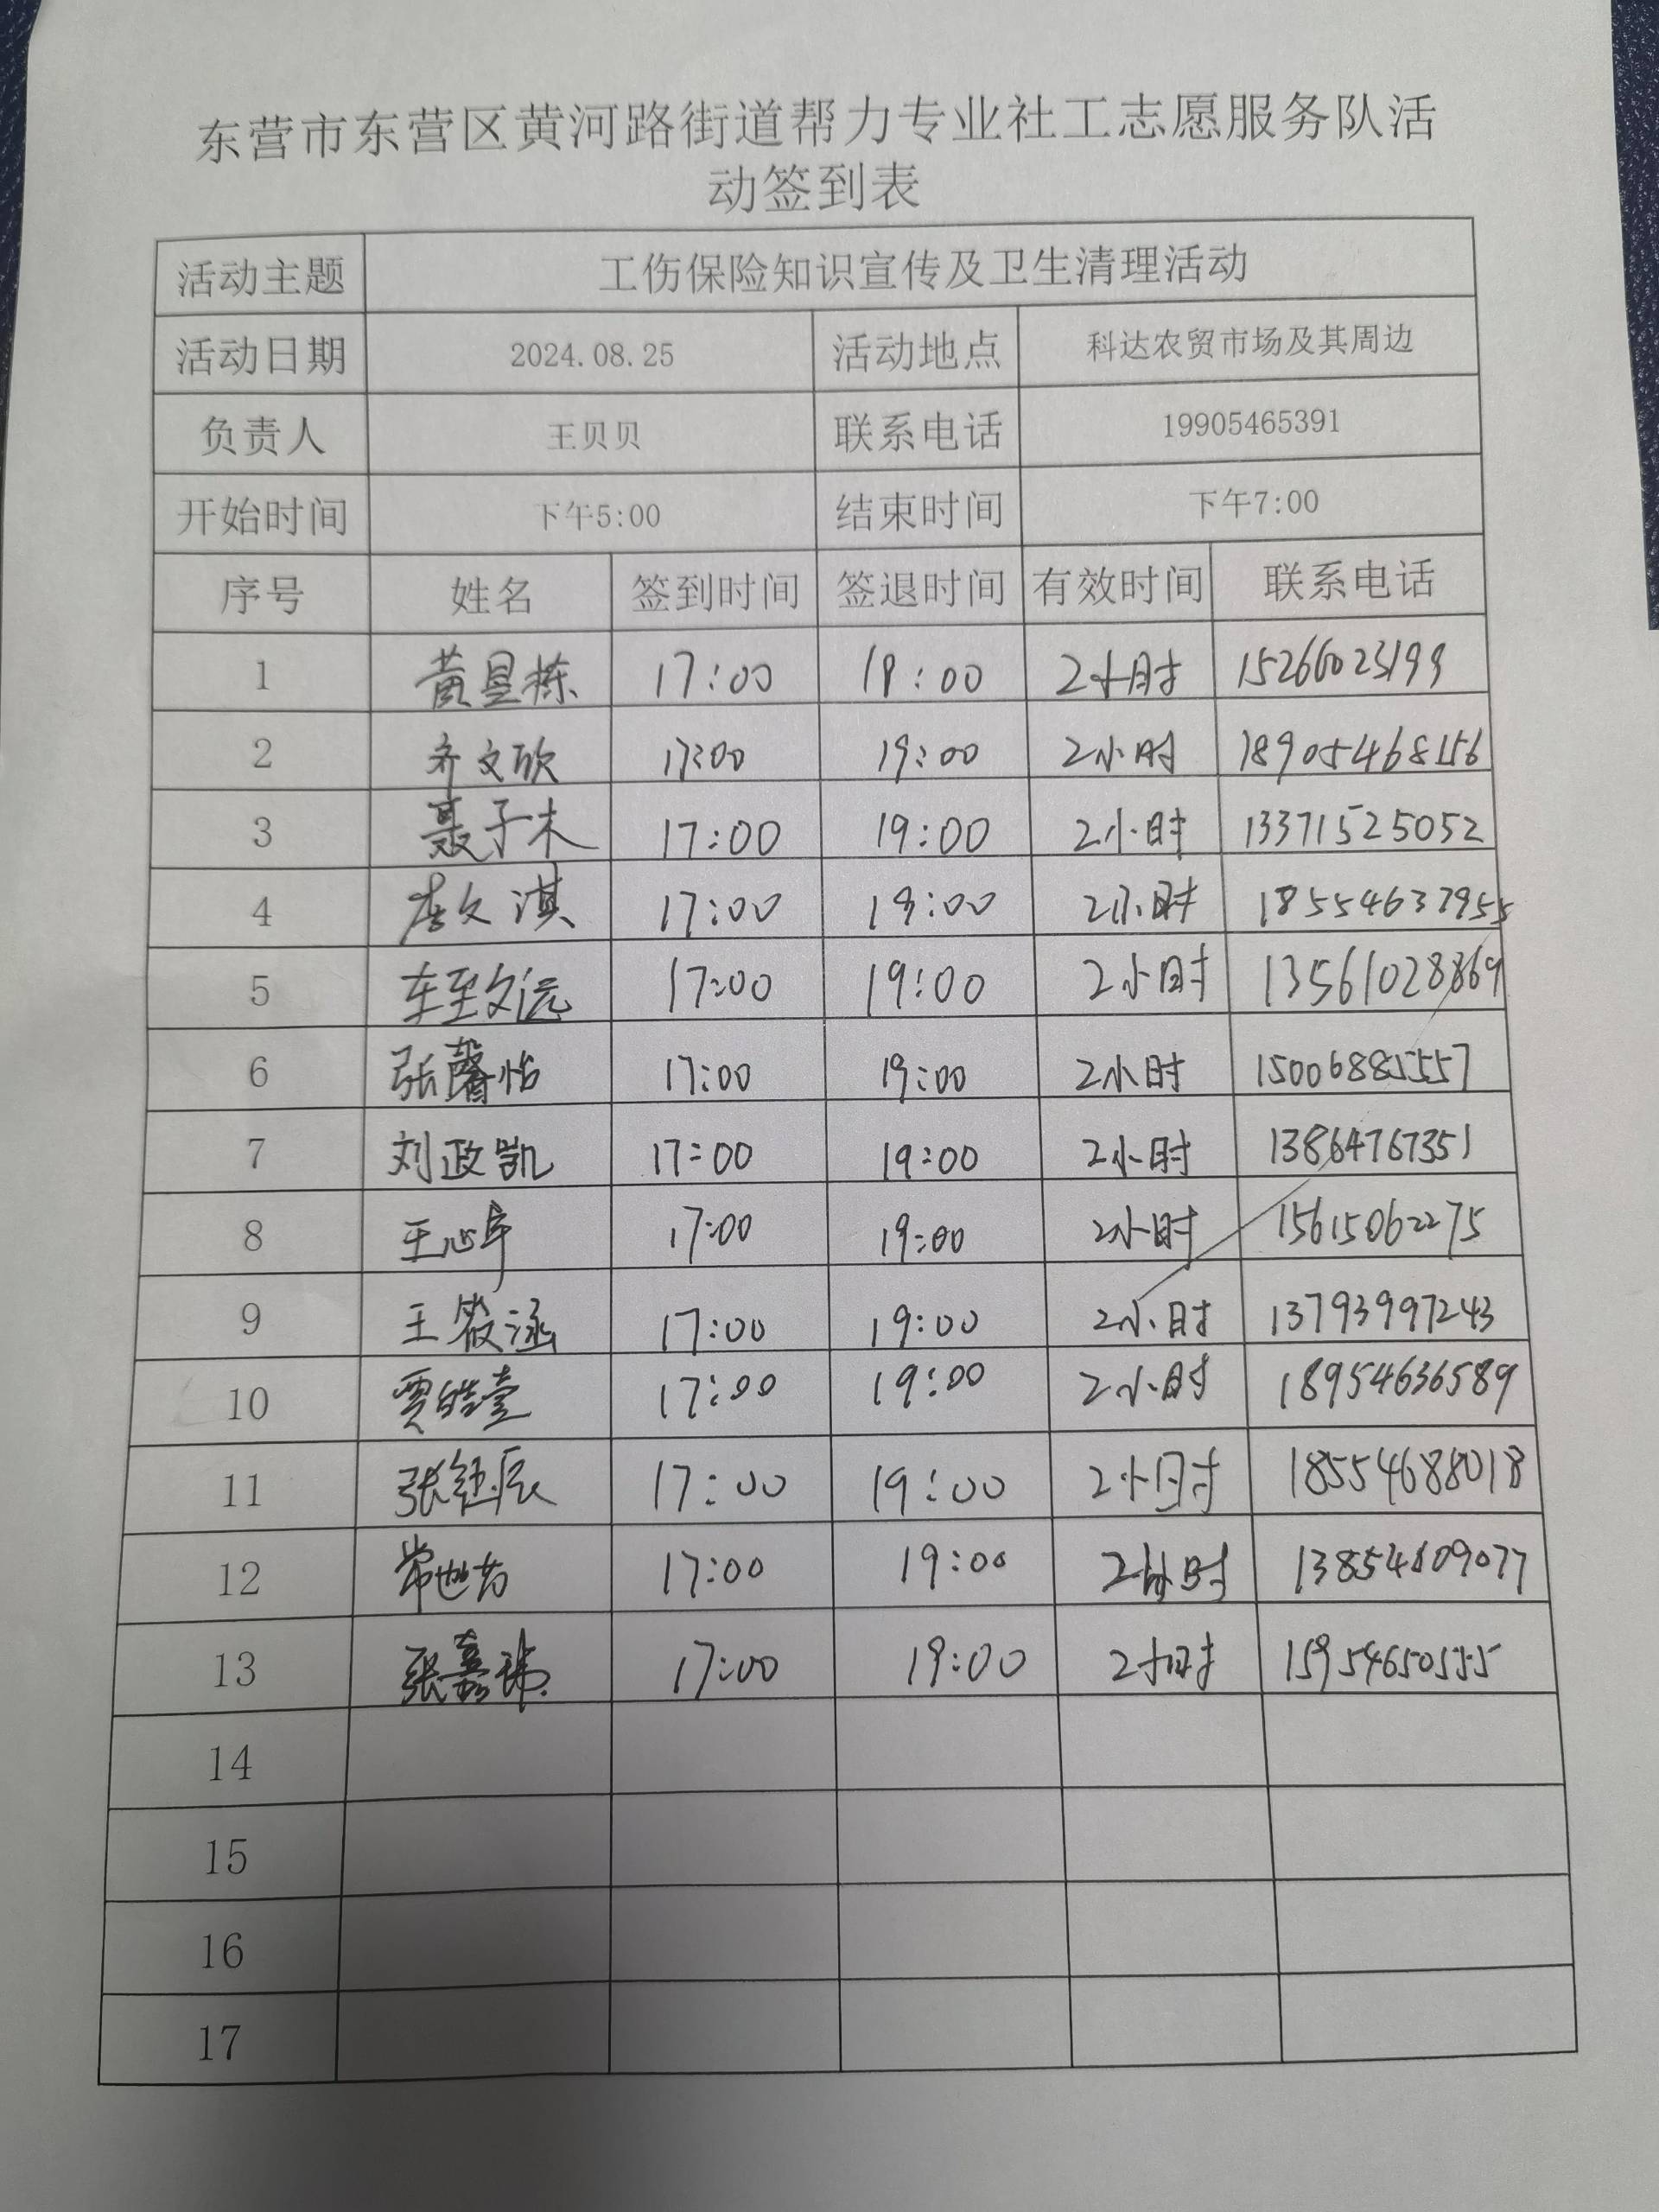 东营市东营区黄河路街道帮力专业社工志愿服务队活
动签到表
活动主题 工伤保险知识宣传及卫生清理活动
活动日期 2024.08.25 活动地点 科达农贸市场及其周边
负责人 王贝贝 联系电话 19905465391
开始时间 下午5:00 结束时间 下午7:00
序号 姓名 签到时间 签退时间 有效时间 联系电话
1 黄昱栋 17:00 19:00 2小时 15266023199
2 齐文欣 17:00 19:00 2小时 18905468156
3 聂子木 17:00 19:00 2小时 13371525052
4 唐文淇 17:00 19:00 2小时 18554637955
5 车至文远 17:00 19:00 2小时 13561028869
6 张馨怡 17:00 19:00 2小时 15006885557
7 刘政凯 17:00 19:00 2小时 13864767351
8 王心 17:00 19:00 2小时 15615062275
9 王筱涵 17:00 19:00 2小时 13793997243
10 贾皓壹 17:00 19:00 2小时 18954636589
11 张钰辰 17:00 19:00 2小时 18554688018
12 常 17:00 19:00 2小时 13854609077
13 张嘉 17:00 19:00 2小时 15954650555
14
15
16
17